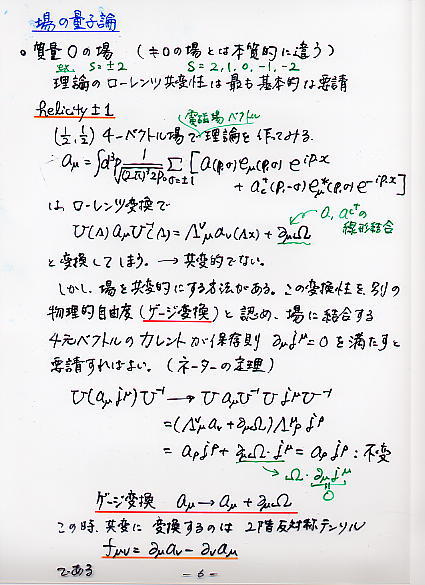 場の量子論
○ 質量 0 の場 (≠0 の場とは本質的に違う)
ex. S=±2 S=2,1,0,-1,-2
理論のローレンツ共変性は最も基本的な要請
helicity ±1
電磁場ベクトル
(½,½) 4-ベクトル場で理論を作ってみる.
aμ = ∫d³p 1/√((2π)³2p₀) Σσ=±1 [a(p,σ)eμ(p,σ)e^{ip·x}
+ ac†(p,-σ)eμ*(p,σ)e^{-ip·x}]
は, ローレンツ変換で a, ac†の
U(Λ)aμU⁻¹(Λ) = Λ^ν_μ aν(Λx) + ∂μΩ 線形結合
と変換してしまう. → 共変的でない。
しかし, 場を共変的にする方法がある。この変換性を別の
物理的自由度 (ゲージ変換) と認め, 場に結合する
4元ベクトルのカレントが保存則 ∂μj^μ=0 を満たすと
要請すればよい。(ネーターの定理)
U(aμj^μ)U⁻¹ → U aμU⁻¹ U j^μU⁻¹
= (Λ^ν_μ aν + ∂μΩ)Λ^μ_ρ j^ρ
= aρj^ρ + ∂μΩ·j^μ = aρj^ρ : 不変
→ Ω·∂μj^μ
‖
0
ゲージ変換 aμ → aμ + ∂μΩ
この時, 共変に変換するのは 2階反対称テンソル
fμν = ∂μaν - ∂νaμ
である
- 6 -